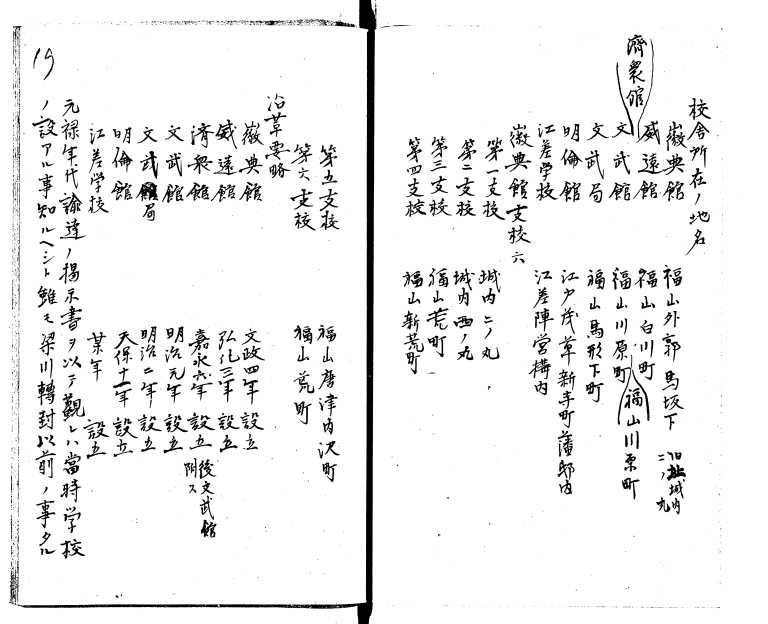 校舎所在ノ地名
徽典館 福山外郭馬坂下 旧址城内二ノ丸
威遠館 福山白川町
濟衆館 福山川原町
文武館 福山川原町
文武局 福山馬形下町
明倫館 江戸浅草新寺町藩邸内
江差学校 江差陣営構内
徽典館支校六
第一支校 城内二ノ丸
第二支校 城内西ノ丸
第三支校 福山荒町
第四支校 福山新荒町
19
第五支校 福山唐津内沢町
第六支校 福山荒町
沿革要略
徽典館 文政四年設立
威遠館 弘化三年設立
済衆館 嘉永六年設立 後文武館附ス
文武館 明治元年設立
文武局 明治二年設立
明倫館 天保十一年設立
江差学校 某年設立
元禄年代諭達ノ掲示書ヲ以テ觀レハ當時学校
ノ設アル事知ルヘシト雖モ梁川轉封以前ノ事タル